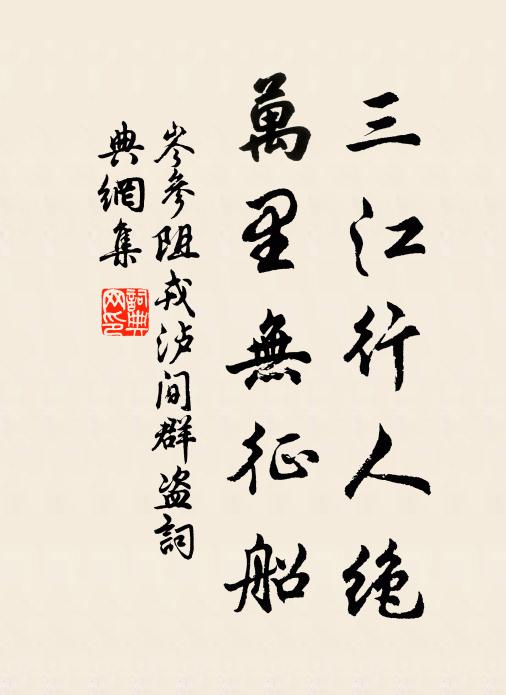 三江行人绝
萬里無征船
岑參阻戎泸间群盗詞
典網集
詞典
网印